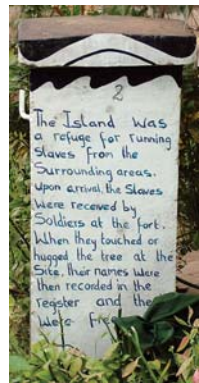 2
The Island was
a refuge for running
Slaves from the
Surrounding areas.
Upon arrival, the Slaves
were received by
Soldiers at the fort.
When they touched or
hugged the tree at the
Site, their names were
then recorded in the
register and the
were free